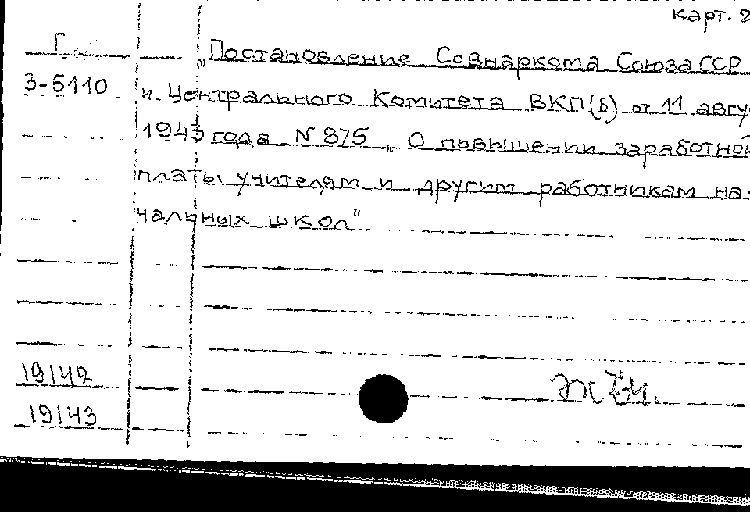 карт. 2
„Постановление Совнаркома Союза ССР
3-5110
и Центрального Комитета ВКП(б) от 11 авгу
1943 года N 875 „О повышении заработной
платы учителям и другим работникам на-
чальных школ"
19142
19143